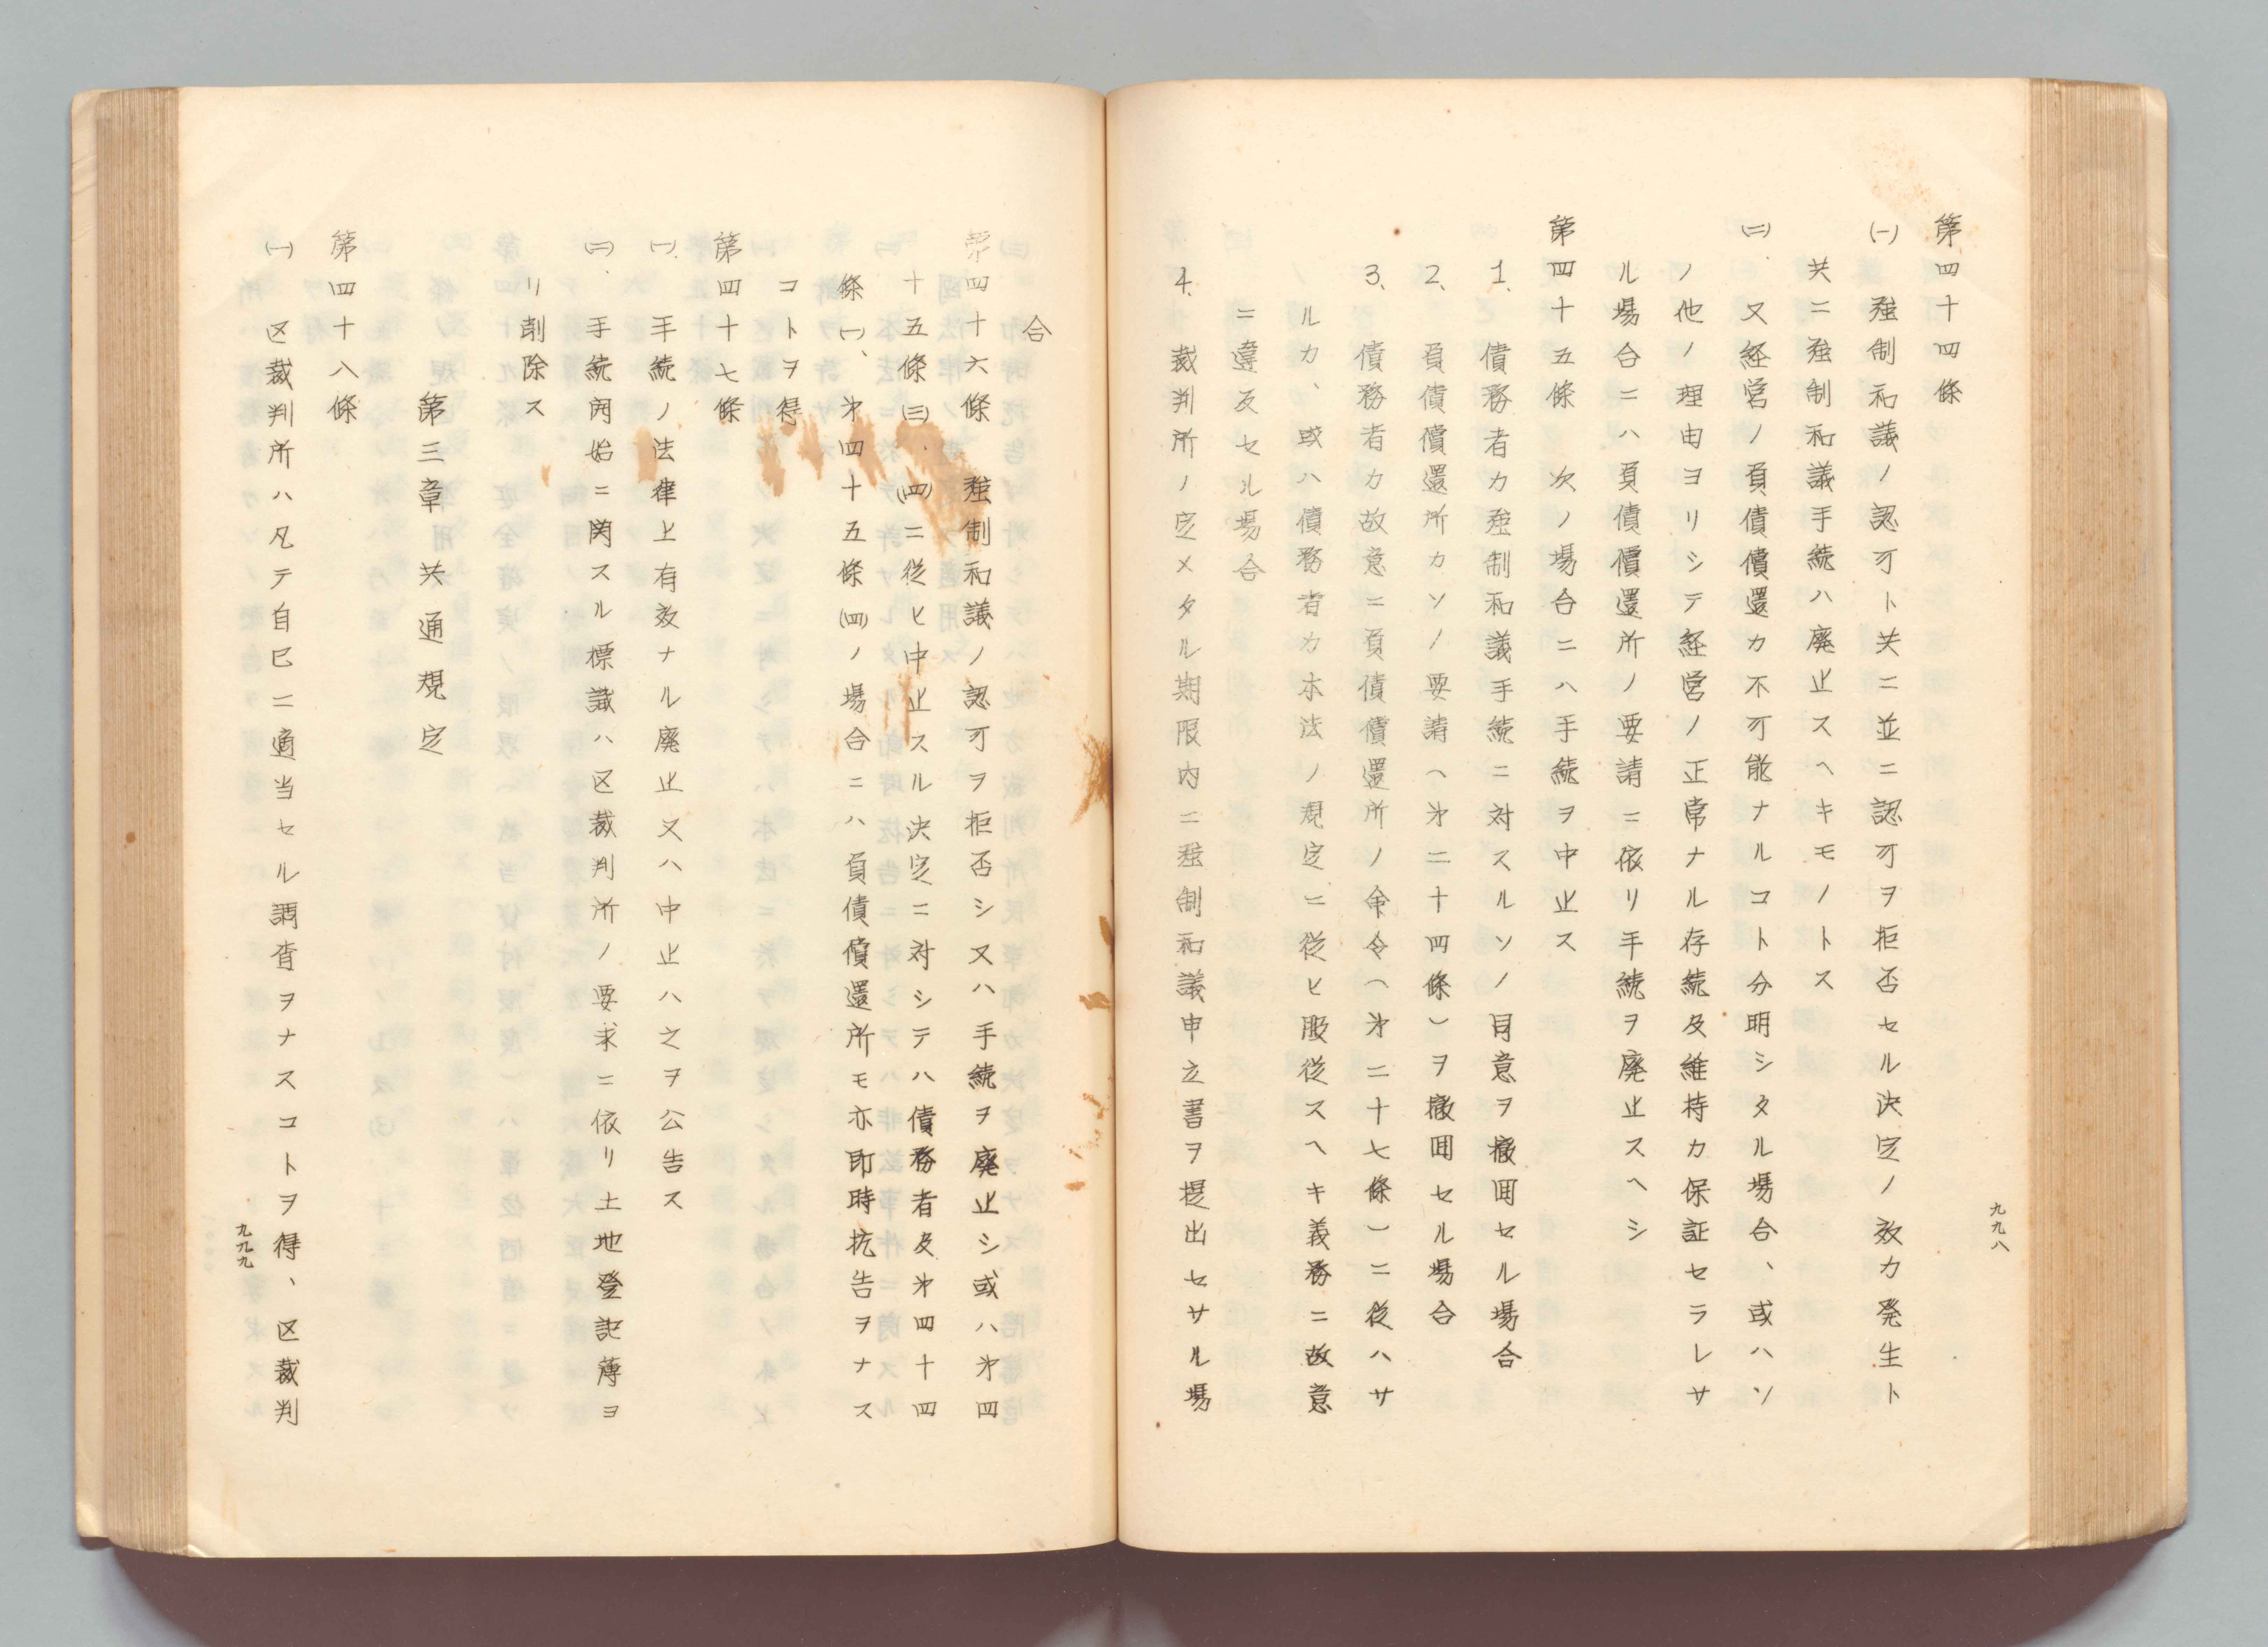 九九八
第四十四條
㈠ 强制和議ノ認可ト共ニ並ニ認可ヲ拒否セル決定ノ效力発生ト
共ニ强制和議手続ハ廃止スヘキモノトス
㈡、又経営ノ負債償還カ不可能ナルコト分明シタル場合、或ハソ
ノ他ノ理由ヨリシテ経営ノ正常ナル存続及維持カ保証セラレサ
ル場合ニハ負債償還所ノ要請ニ依リ手続ヲ廃止スヘシ
第四十五條 次ノ場合ニハ手続ヲ中止ス
1、債務者カ强制和議手続ニ対スルソノ同意ヲ撤囬セル場合
2、負債償還所カソノ要請(㐧二十四條)ヲ撤囬セル場合
3、債務者カ故意ニ負債償還所ノ命令(㐧二十七條)ニ従ハサ
ルカ、或ハ債務者カ本法ノ規定ニ従ヒ服従スヘキ義務ニ故意
ニ違反セル場合
4、裁判所ノ定メタル期限内ニ强制和議申立書ヲ提出セサル場
合
第四十六條 强制和議ノ認可ヲ拒否シ又ハ手続ヲ廃止シ或ハ㐧四
十五條㈢、㈣ニ従ヒ中止スル決定ニ対シテハ債務者及㐧四十四
條㈠、㐧四十五條㈣ノ場合ニハ負債償還所モ亦即時抗告ヲナス
コトヲ得
第四十七條
㈠、手続ノ法律上有效ナル廃止又ハ中止ハ之ヲ公告ス
㈡、手続開始ニ関スル標識ハ区裁判所ノ要求ニ依リ土地登記薄ヨ
リ削除ス
第三章 共通規定
第四十八條
㈠ 区裁判所ハ凡テ自己ニ適当セル調査ヲナスコトヲ得、区裁判
九九九